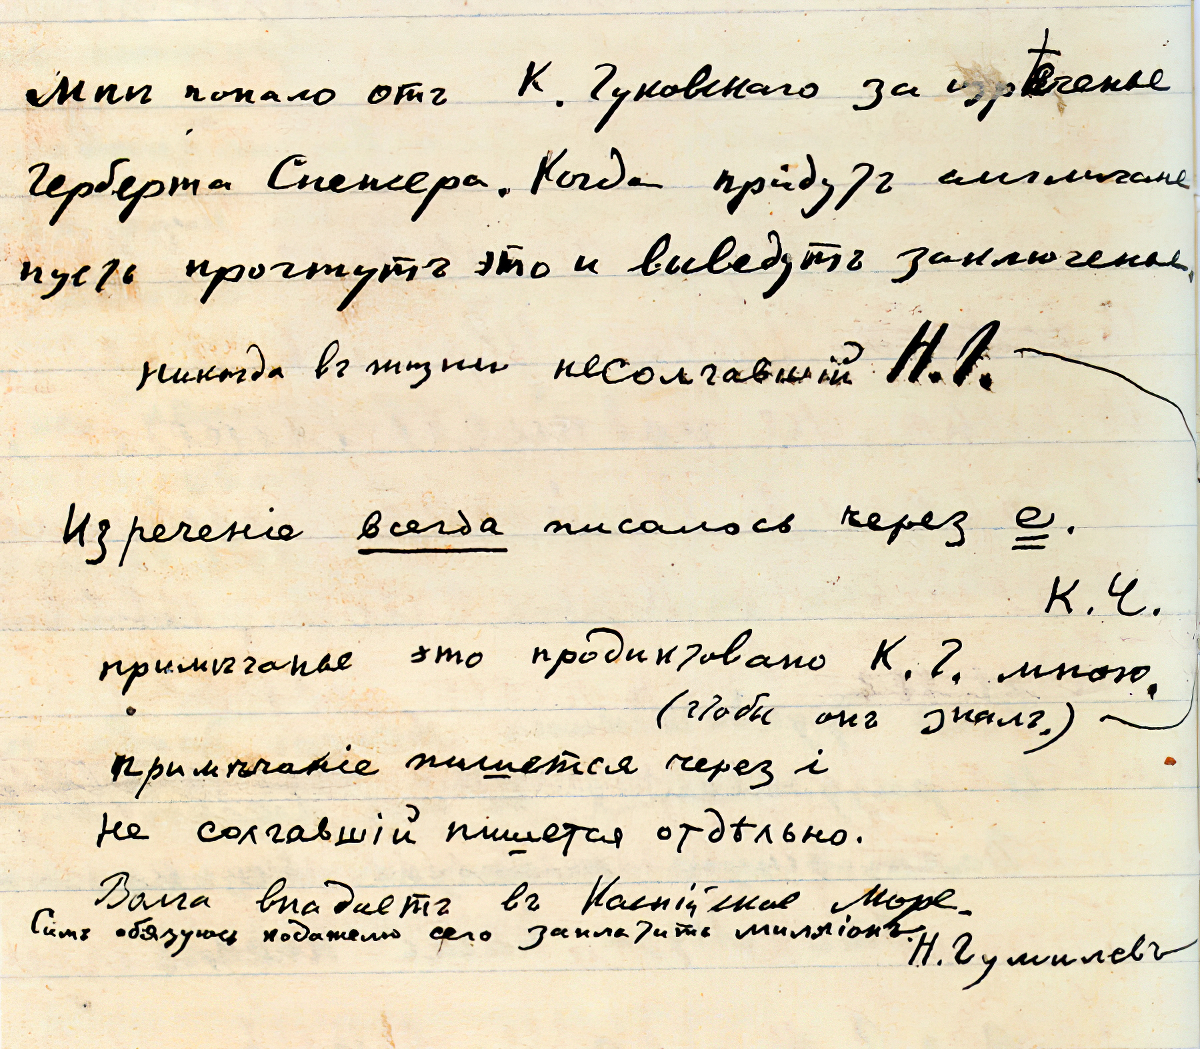 Мнѣ попало отъ К. Чуковскаго за изрѣченье
Герберта Спенсера. Когда прійдутъ англичане
пусть прочтутъ это и выведутъ заключенье.
никогда въ жизни несолгавшій Н. Г.
Изреченіе всегда писалось через е.
К. Ч.
примѣчанье это продиктовано К. Ч. мною.
(чтобы онъ зналъ.)
Примѣчаніе пишется через і
не солгавшій пишется отдѣльно.
Волга впадаетъ въ Каспійское море.
Симъ обязуюсь подателю сего заплатить милліонъ.
Н. Гумилевъ